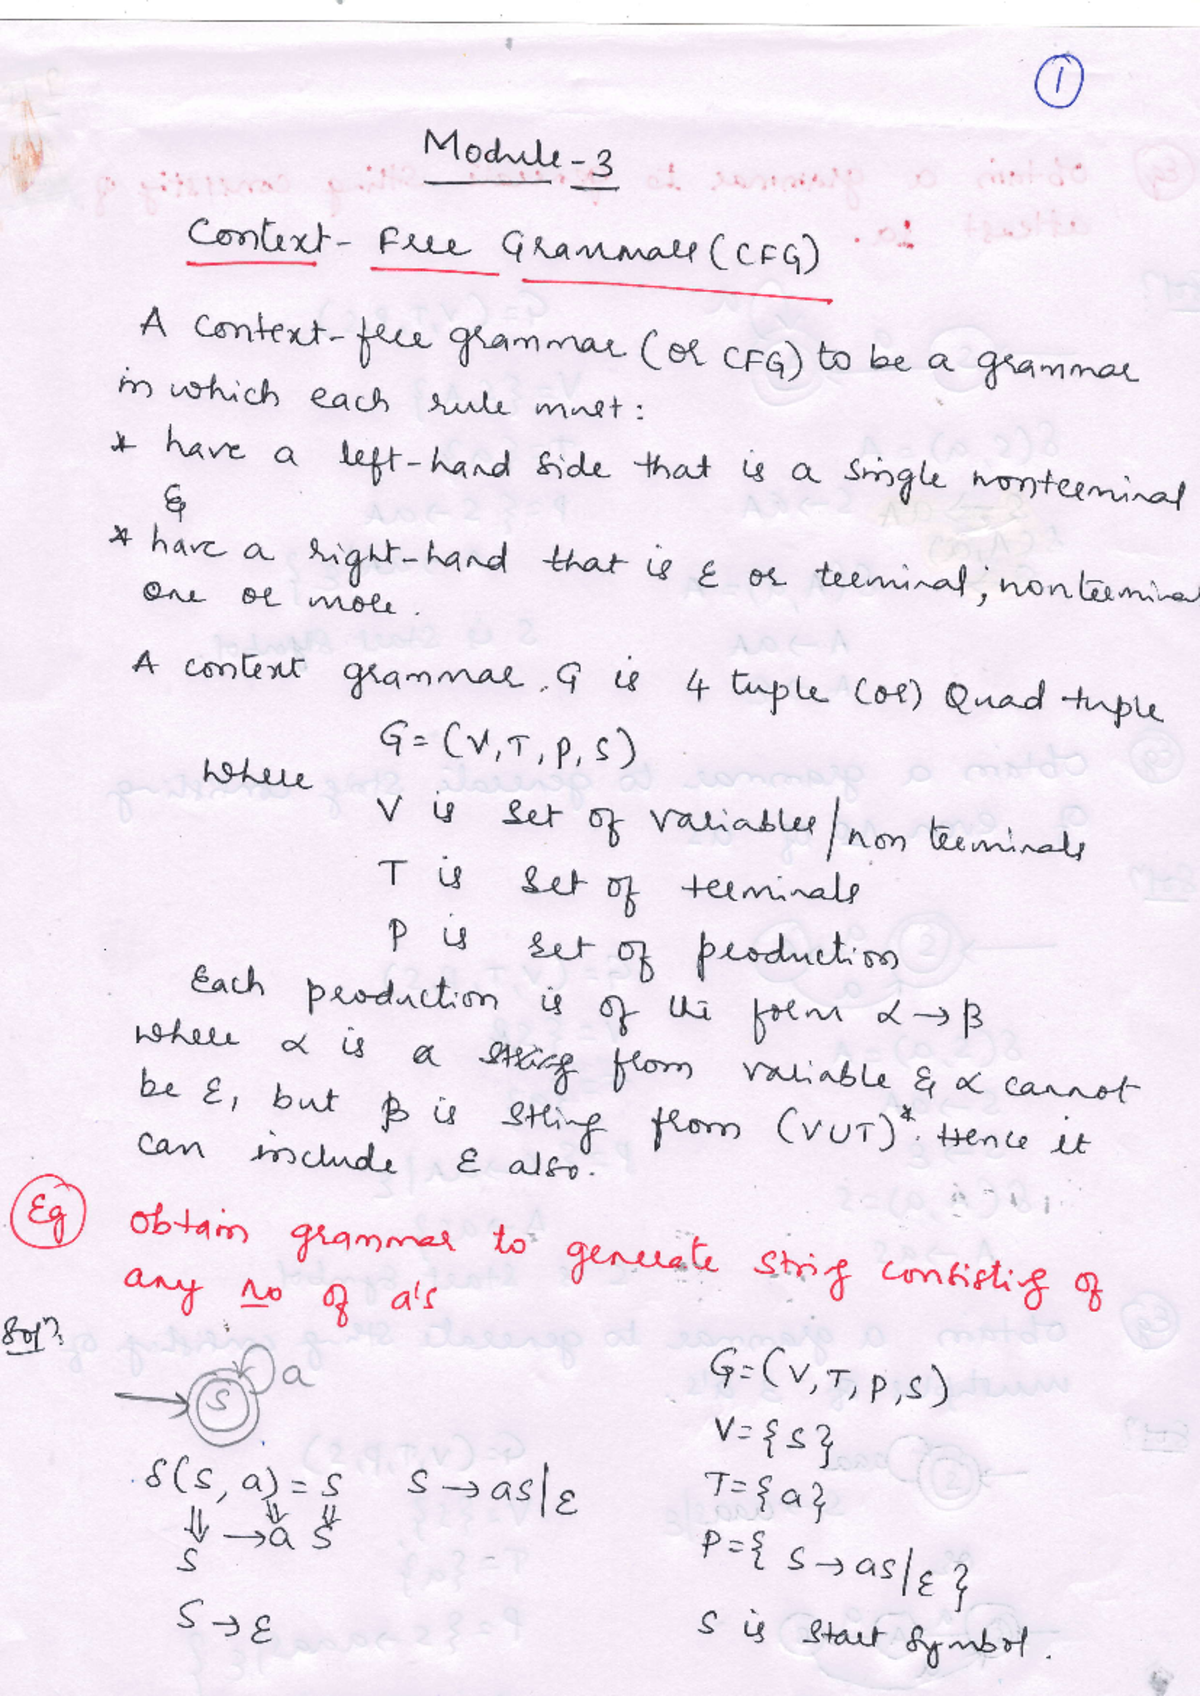 1
Module-3
Context-Free Grammar (CFG)
A context-free grammar (or CFG) to be a grammar
in which each rule must:
* have a left-hand side that is a single nonterminal
&
* have a right-hand that is ε or terminal, nonterminal
one or more.
A context grammar. G is 4 tuple (or) Quad tuple
G=(V,T,P,S)
where
V is set of variables/non terminals
T is set of terminals
P is set of production
Each production is of the form α→β
where α is a string from variable & α cannot
be ε, but β is string from (VUT)*. Hence it
can include ε also.
Eg obtain grammar to generate string consisting of
any no of a's
Soln:
S a
G=(V,T,P,S)
V={S}
δ(S,a)=S S→aS|ε
T={a}
⇓ →a S
S
P={S→aS|ε}
S→ε
S is start symbol.